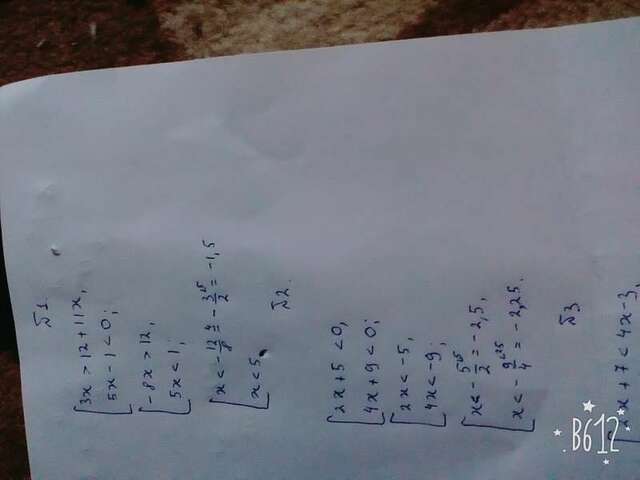 №1.
3x > 12 + 11x,
5x - 1 < 0;
-8x > 12,
5x < 1;
x < - 12/8 = - 3/2 = -1,5
x < 5.
№2.
2x + 5 < 0,
4x + 9 < 0;
2x < -5,
4x < -9;
x < - 5/2 = -2,5,
x < - 9/4 = -2,25.
№3
x + 7 < 4x - 3,
B612